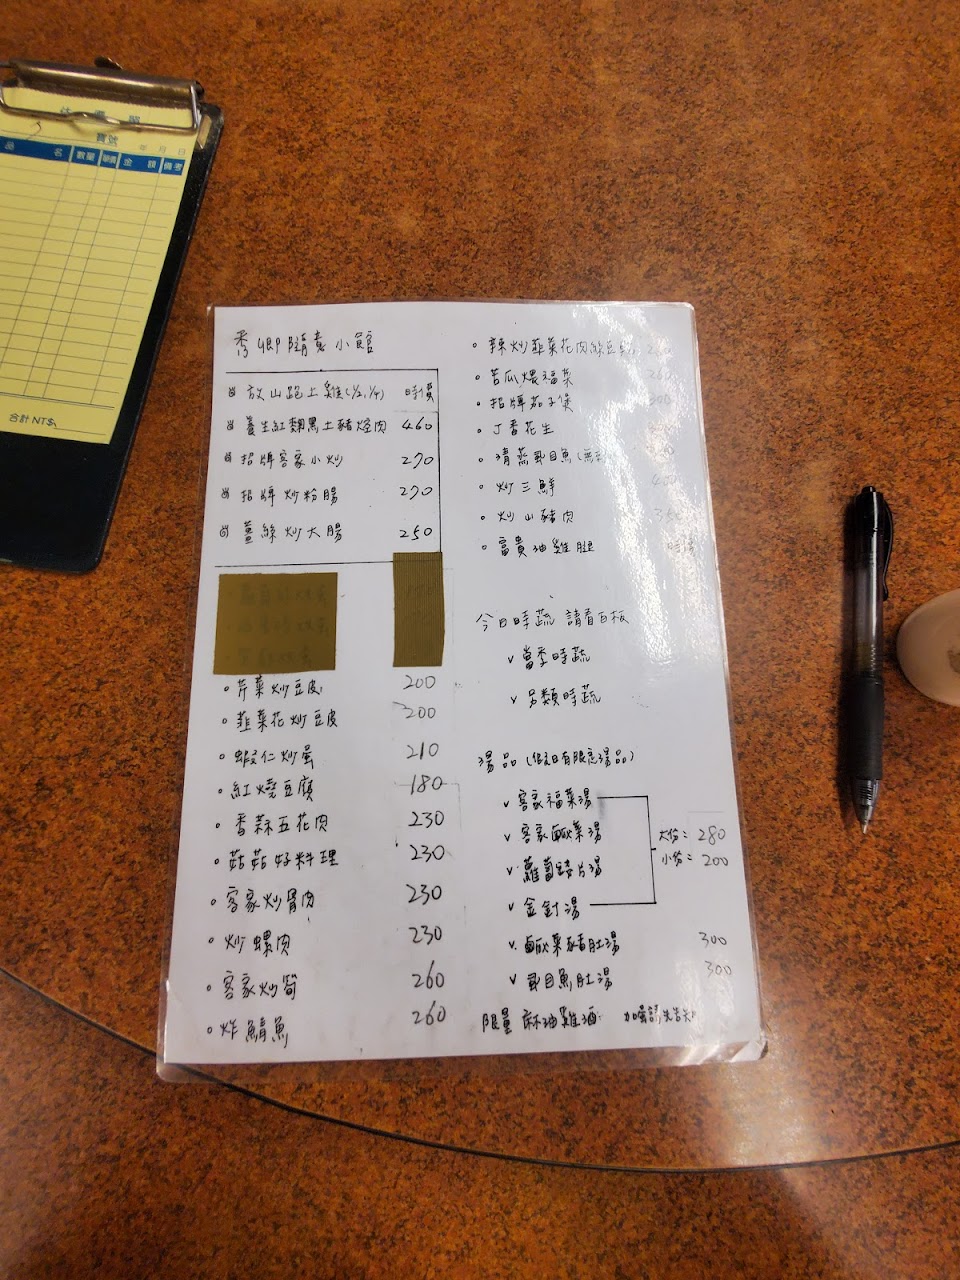 賣號
年 月 日
品 名 數量 單價 金 額 備考
合計 NT$
隨意小館
放山跑土雞(1/2, 1/4) 時價
養生紅麴黑土豬焢肉 460
招牌客家小炒 270
招牌炒粉腸 270
薑絲炒大腸 250
芹菜炒豆皮 200
韮菜花炒豆皮 200
蝦仁炒蛋 210
紅燒豆腐 180
香蒜五花肉 230
菇菇好料理 230
客家炒骨肉 230
炒螺肉 230
客家炒筍 260
炸鯖魚 260
辣炒韮菜花肉絲豆
苦瓜煨福菜
招牌茄子煲
丁香花生
清蒸虱目魚
炒三鮮
炒山豬肉
富貴油雞腿 時價
今日時蔬 請看白板
v 當季時蔬
v 另類時蔬
湯品 (假日有限定湯品)
v 客家福菜湯
v 客家鹹菜湯
v 蘿蔔錢片湯
v 金針湯
大份= 280
小份= 200
v. 鹹菜豬肚湯 300
v 虱目魚肚湯 300
限量 麻油雞酒 加蛋請先告知